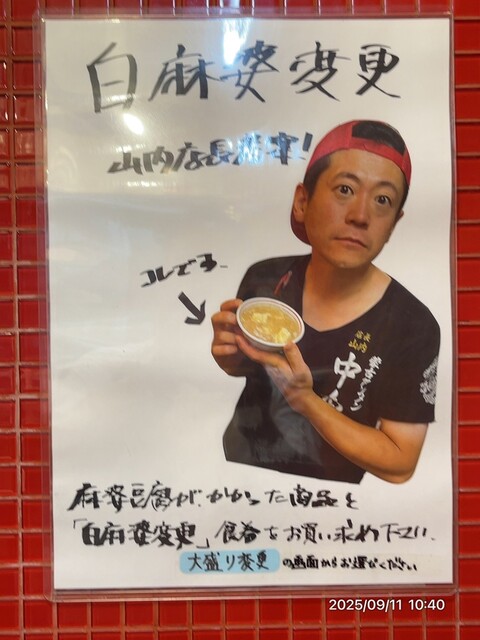 白麻婆変更
山内店長考案!
コレです。
店長
山内
蒙古タンメン
中
麻婆豆腐が、かかった商品を
「白麻婆変更」食券をお買い求め下さい。
大盛り変更の画面からお選びください
2025/09/11 10:40